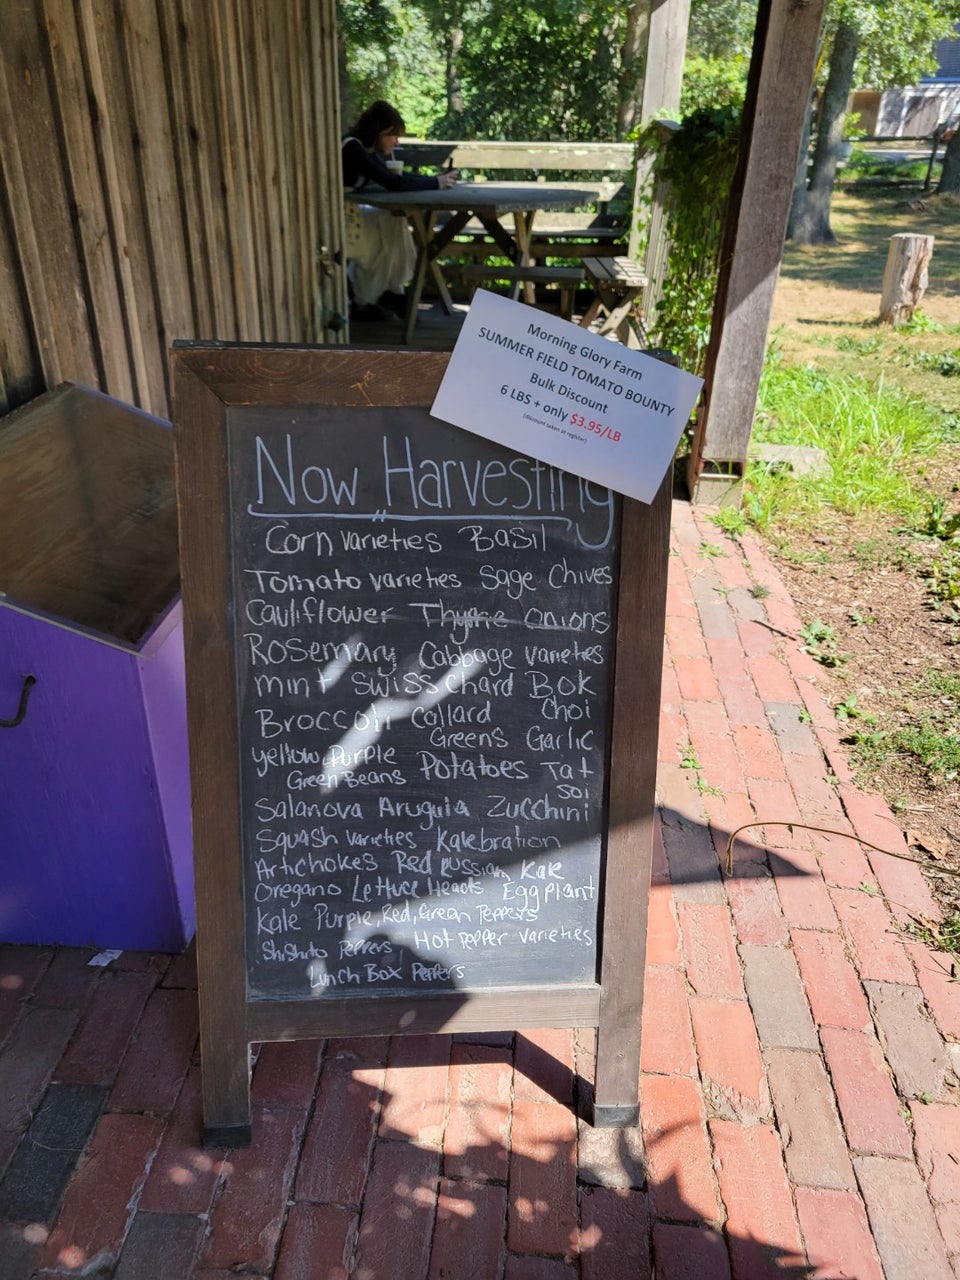 Morning Glory Farm
SUMMER FIELD TOMATO BOUNTY
Bulk Discount
6 LBS + only $3.95/LB
(discount taken at register)
Now Harvesting
Corn varieties Basil
Tomato varieties Sage Chives
Cauliflower Thyme onions
Rosemary Cabbage varieties
mint Swiss chard Bok
Choi
Broccoli Collard
Greens Garlic
yellow, Purple
Green Beans Potatoes Tat
soi
Salanova Arugula Zucchini
Squash varieties Kalebration
Artichokes Red Russian Kale
Oregano Lettuce Heads Eggplant
Kale Purple, Red, Green Peppers
Shishito Peppers Hot Pepper varieties
Lunch Box Peppers